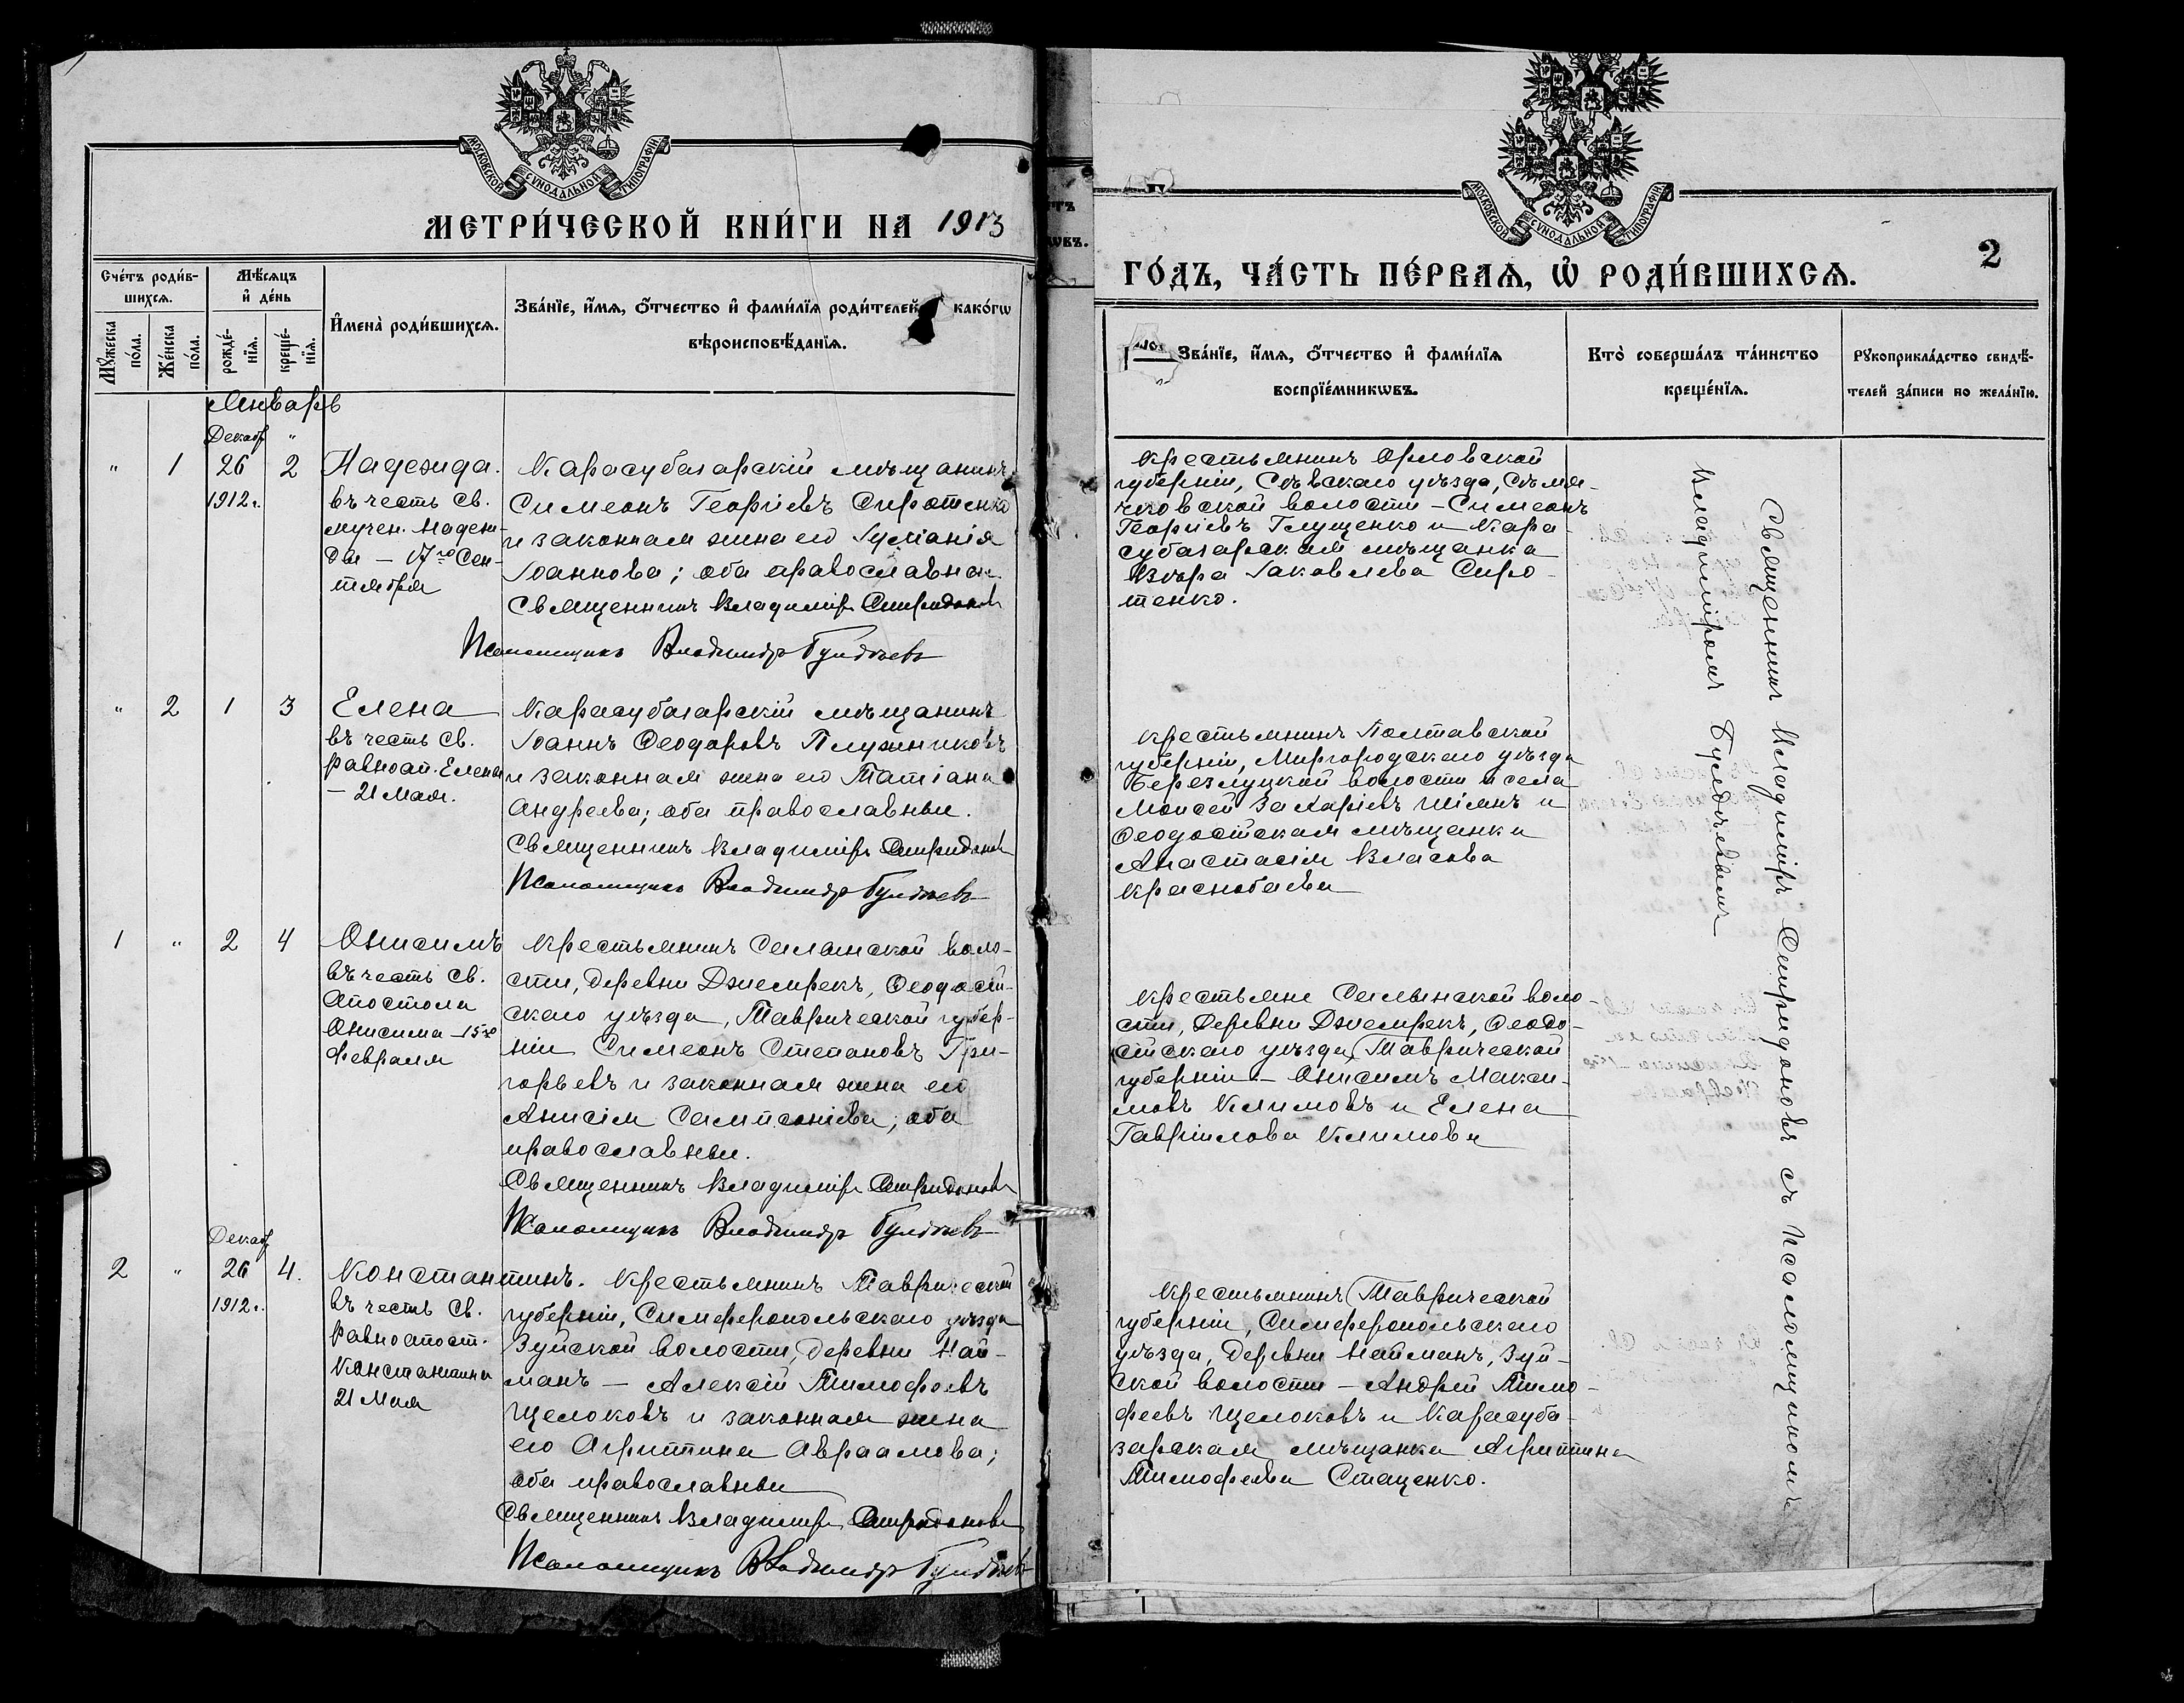 МОСКОВСКОЙ СѴНОДАЛЬНОЙ ТИПОГРАФІИ
МЕТРИ́ЧЕСКОЙ КНИ́ГИ НА 1913
Сче́тъ роди́в-
шихсѧ.
Мѣ́сѧцъ
и҆ де́нь
Мꙋ́жеска
по́ла.
Же́нска
по́ла.
рожде́-
нїѧ.
креще́-
нїѧ.
И҆мена̀ роди́вшихсѧ.
Зва́нїе, и҆́мѧ, ѻ҆́тчество и҆ фами́лїѧ роди́телей како́гѡ
вѣроисповѣ́данїѧ.
Январь
Декабр "
" 1 26 2
1912 г.
Надежда.
въ честь св.
мучен. Надеж-
ды — 17го Сен-
тября
Карасубазарскій мѣщанинъ
Симеонъ Георгіевъ Сиротенко
и законная жена его Іуліанія
Іоаннова; оба православные.
Священникъ Владимиръ Спиридоновъ
Псаломщикъ Владимиръ
" 2 1 3
Елена
въ честь св.
равноап. Елены
— 21 Мая.
Карасубазарскій мѣщанинъ
Іоаннъ Ѳеодоровъ Плужниковъ
и законная жена его Татіана
Андреева; оба православные.
Священникъ Владимиръ Спиридоновъ
Псаломщикъ Владимиръ
1 " 2 4
Онисимъ
въ честь св.
Апостола
Онисима — 15го
Февраля
Крестьянинъ Салынской воло-
сти, деревни Джемрекъ, Ѳеодосій-
скаго уѣзда, Таврической губер-
ніи Симеонъ Степановъ Гри-
горьевъ и законная жена его
Анисія Сампсоніева; оба
православные.
Священникъ Владимиръ Спиридоновъ
Псаломщикъ Владимиръ
Декабр
2 " 26 4.
1912 г.
Константинъ.
въ честь св.
равноапост.
Константина
21 Мая
Крестьянинъ Таврической
губерніи, Симферопольскаго уѣзда
Зуйской волости, деревни Най-
манъ — Алексій Тимофеевъ
Щелоковъ и законная жена
его Агриппина Авраамова;
оба православные
Священникъ Владимиръ Спиридоновъ
Псаломщикъ Владимиръ
МОСКОВСКОЙ СѴНОДАЛЬНОЙ ТИПОГРАФІИ
2
ГО́ДЪ, ЧА́СТЬ ПЕ́РВАѦ, Ѡ҆ РОДИ́ВШИХСѦ.
Зва́нїе, и҆́мѧ, ѻ҆́тчество и҆ фами́лїѧ
воспрїе́мникѡвъ.
Кто̀ соверша́лъ та́инство
креще́нїѧ.
Рꙋкоприкла́дство свидѣ́-
телей за́писи по жела́нїю.
Крестьянинъ Орловской
губерніи, Сѣвскаго уѣзда,
волости — Симеонъ
Георгіевъ Глущенко и Кара-
субазарская мѣщанка
Вѣра Іаковлева Сиро-
тенко.
Крестьянинъ Полтавской
губерніи, Миргородскаго уѣзда
Березлуцкой волости и села
Моисей Захаріевъ и
Ѳеодосійская мѣщанка
Анастасія Власова
Краснобаева
Крестьяне Салынской воло-
сти, деревни Джемрекъ, Ѳеодо-
сійскаго уѣзда, Таврической
губерніи — Онисимъ Макси-
мовъ Климовъ и Елена
Гавріилова Климова
Крестьянинъ Таврической
губерніи, Симферопольскаго
уѣзда, деревни Найманъ, Зуй-
ской волости — Андрей Тимо-
феевъ Щелоковъ и Карасуба-
зарская мѣщанка Агриппина
Тимофеева Стаценко.
Священникъ Владимиръ Спиридоновъ съ псаломщикомъ
Владимиромъ